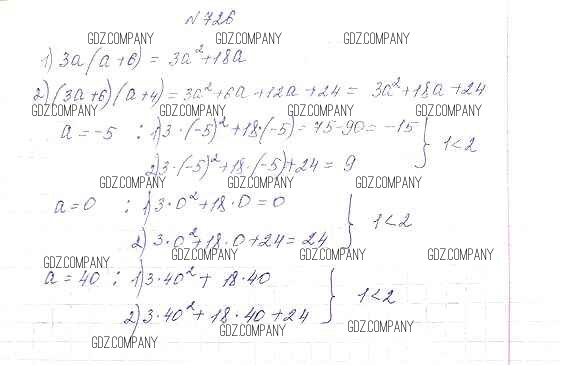 №726
GDZ.COMPANY GDZ.COMPANY GDZ.COMPANY
1) 3a(a+6) = 3a²+18a
2) (3a+6)(a+4) = 3a²+6a+12a+24 = 3a²+18a+24
GDZ.COMPANY GDZ.COMPANY GDZ.COMPANY GDZ.COMPANY
a=-5 : 1) 3·(-5)²+18·(-5)=75-90=-15 } 1<2
2) 3·(-5)²+18·(-5)+24=9
GDZ.COMPANY GDZ.COMPANY GDZ.COMPANY
a=0 : 1) 3·0²+18·0=0 } 1<2
2) 3·0²+18·0+24=24
GDZ.COMPANY GDZ.COMPANY GDZ.COMPANY GDZ.COMPANY
a=40 : 1) 3·40²+ 18·40 } 1<2
2) 3·40²+18·40+24
GDZ.COMPANY GDZ.COMPANY GDZ.COMPANY